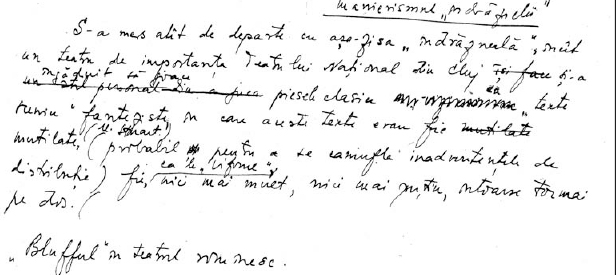 manierismul „îndrăznelii”
S-a mers atît de departe cu așa-zisa „îndrăzneală”, încît
un teatru de importanța Teatrului Național din Cluj își face și-a
îngăduit să joace
un piesele clasice ca „texte
fanteziste în care aceste texte erau fie mutilate
mutilate, (probabil pentru a se camufla inadvertențele de
distribuție) fie, nici mai mult, nici mai puțin, întoarse tocmai
pe dos.
„Blufful” în teatrul românesc.